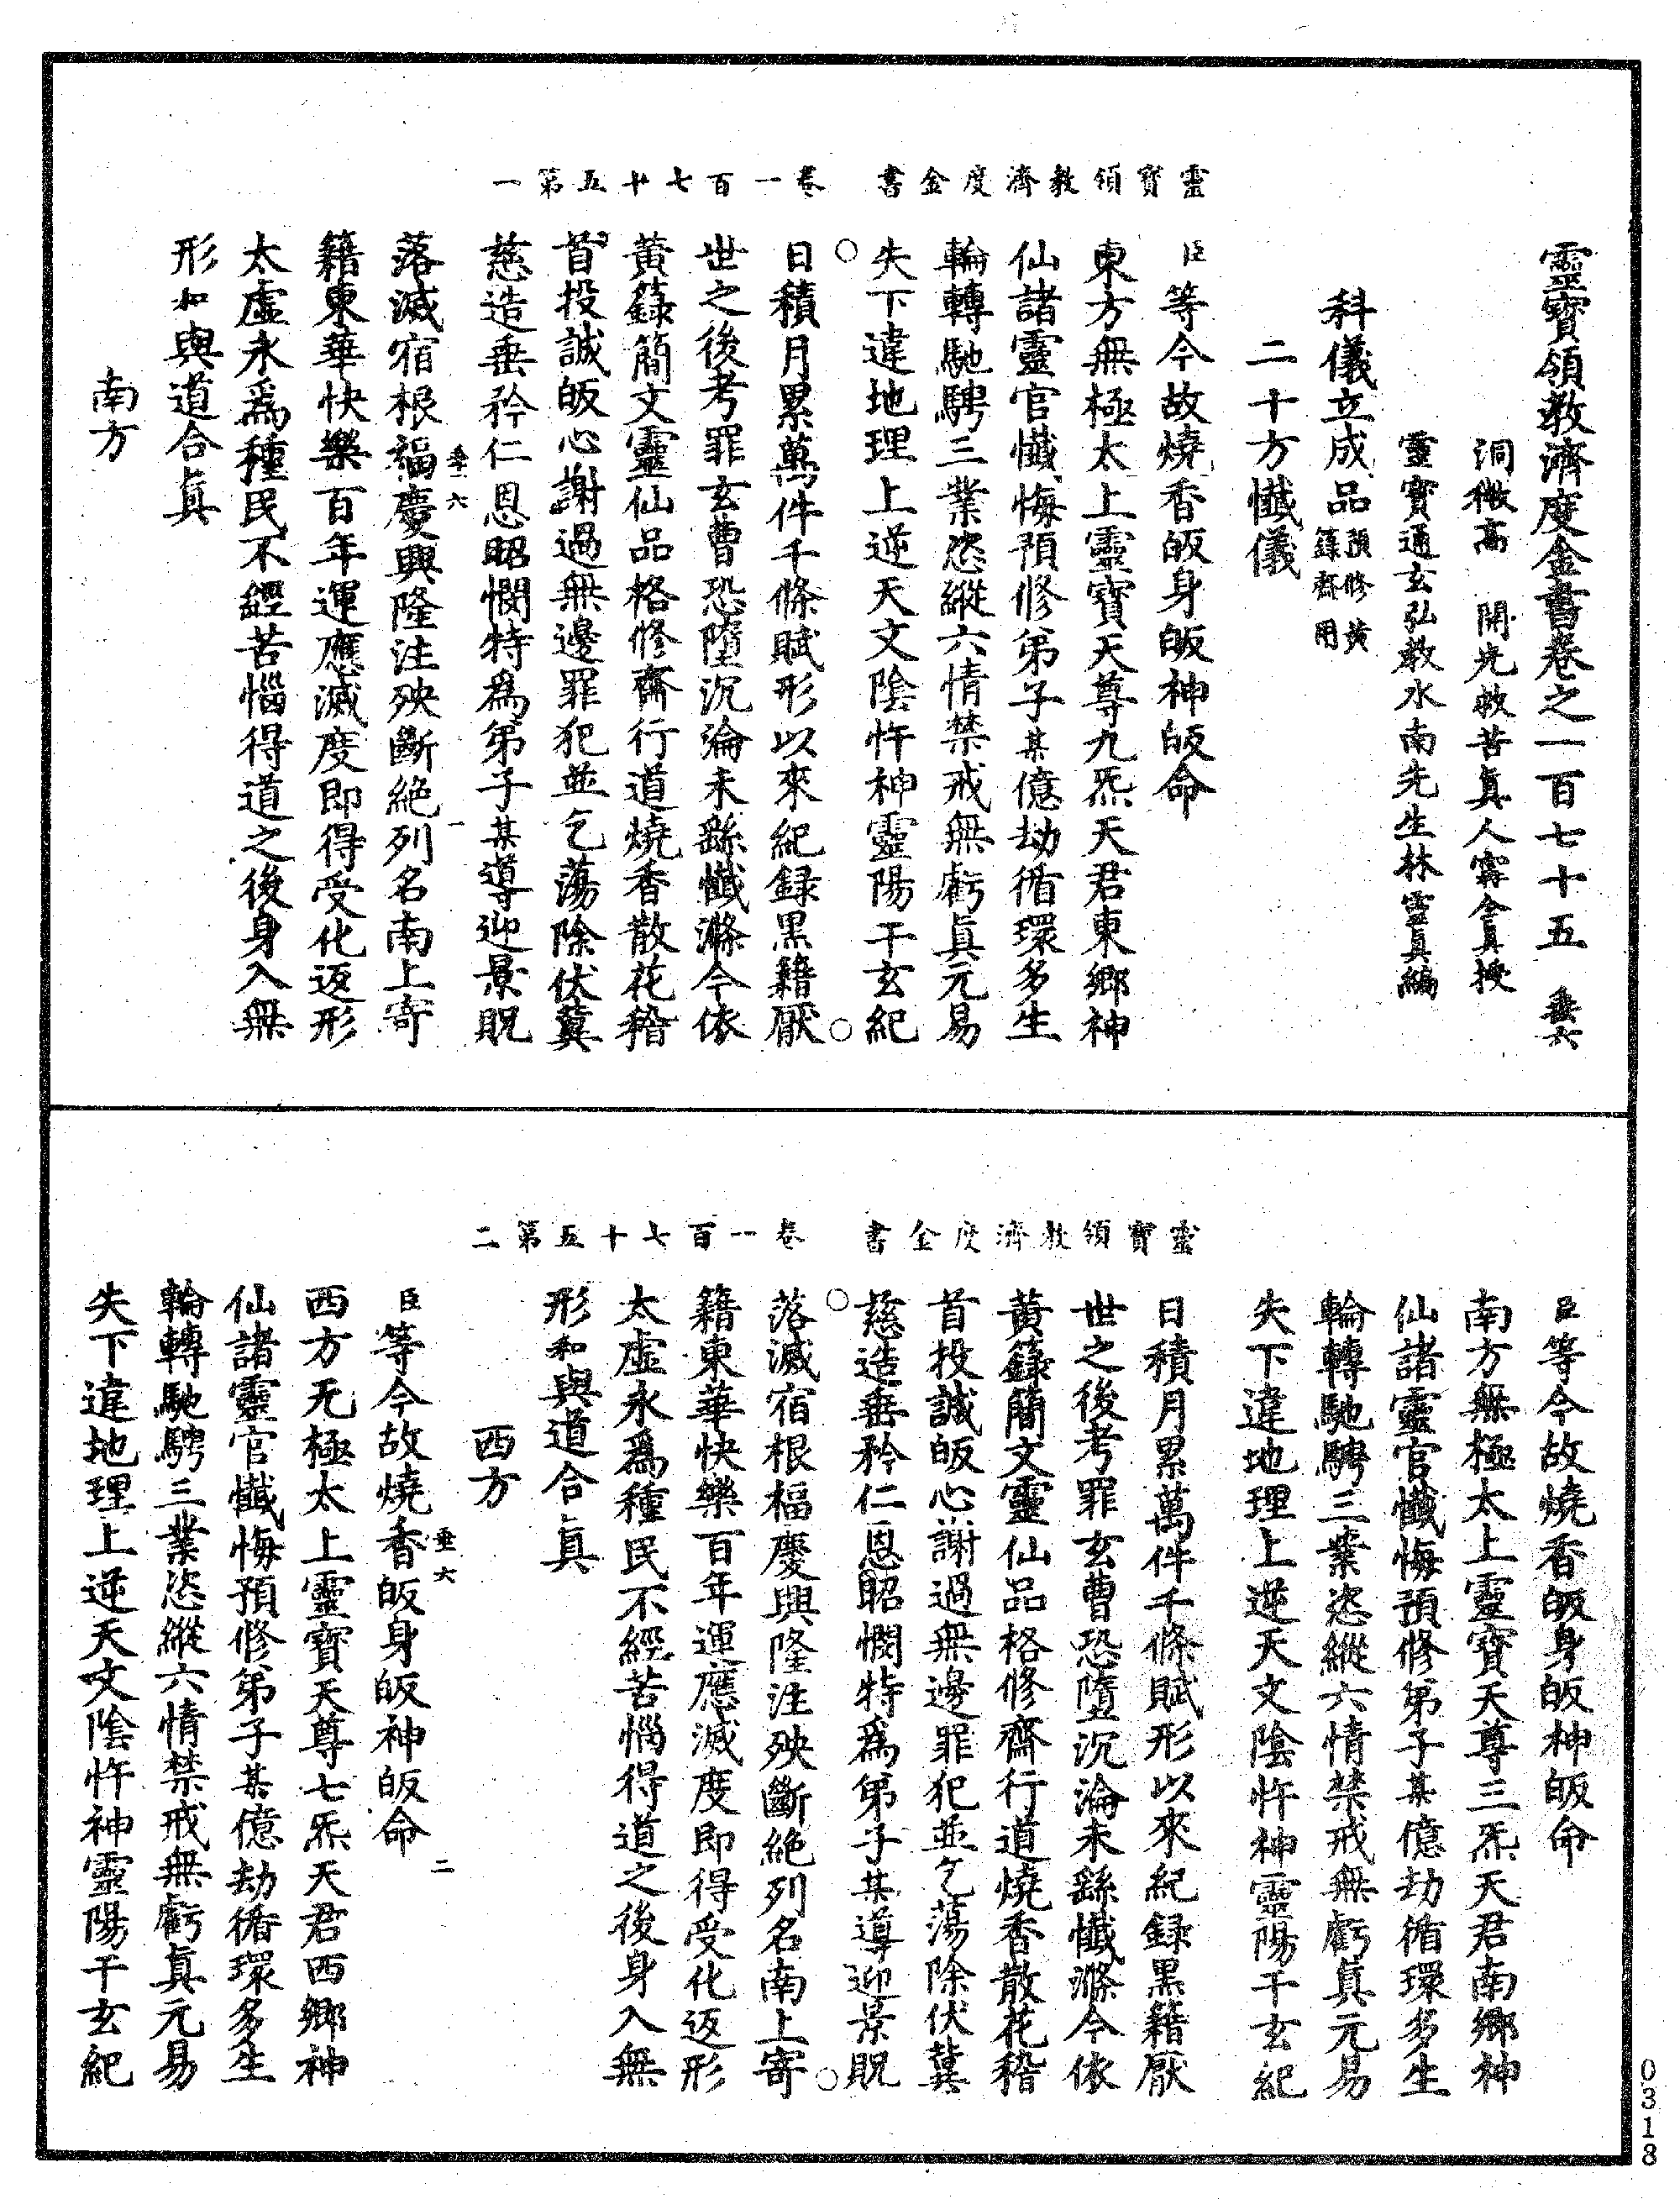 靈寶領教濟度金書卷之一百七十五 垂六
洞微高 開光救苦真人甯全真授
靈寶通玄弘教水南先生林靈真編
科儀立成品預修黃籙齋用
二十方懺儀
臣等今故燒香皈身皈神皈命
東方無極太上靈寶天尊九炁天君東鄉神
仙諸靈官懺悔預修弟子某億劫循環多生
輪轉馳騁三業恣縱六情禁戒無虧真元易
失下違地理上逆天文陰忤神靈陽干玄紀
靈寶領教濟度金書 卷一百七十五第一
日積月累萬件千條賦形以來紀録黑籍厭
世之後考罪玄曹恐墮沉淪未繇懺滌今依
黃籙簡文靈仙品格修齋行道燒香散花稽
首投誠皈心謝過無邊罪犯並乞蕩除伏冀
慈造垂矜仁恩昭憫特為弟子某導迎景貺
垂六 一
落滅宿根福慶興隆注殃斷絕列名南上寄
籍東華快樂百年運應滅度即得受化返形
太虛永為種民不經苦惱得道之後身入無
形和與道合真
南方
臣等今故燒香皈身皈神皈命
南方無極太上靈寶天尊三炁天君南鄉神
仙諸靈官懺悔預修弟子某億劫循環多生
輪轉馳騁三業恣縱六情禁戒無虧真元易
失下違地理上逆天文陰忤神靈陽干玄紀
日積月累萬件千條賦形以來紀録黑籍厭
世之後考罪玄曹恐墮沉淪未繇懺滌今依
黃籙簡文靈仙品格修齋行道燒香散花稽
首投誠皈心謝過無邊罪犯並乞蕩除伏冀
慈造垂矜仁恩昭憫特為弟子某導迎景貺
靈寶領教濟度金書 卷一百七十五第二
落滅宿根福慶興隆注殃斷絕列名南上寄
籍東華快樂百年運應滅度即得受化返形
太虛永為種民不經苦惱得道之後身入無
形和與道合真
西方
垂六 二
臣等今故燒香皈身皈神皈命
西方无極太上靈寶天尊七炁天君西鄉神
仙諸靈官懺悔預修弟子某億劫循環多生
輪轉馳騁三業恣縱六情禁戒無虧真元易
失下違地理上逆天文陰忤神靈陽干玄紀
0318